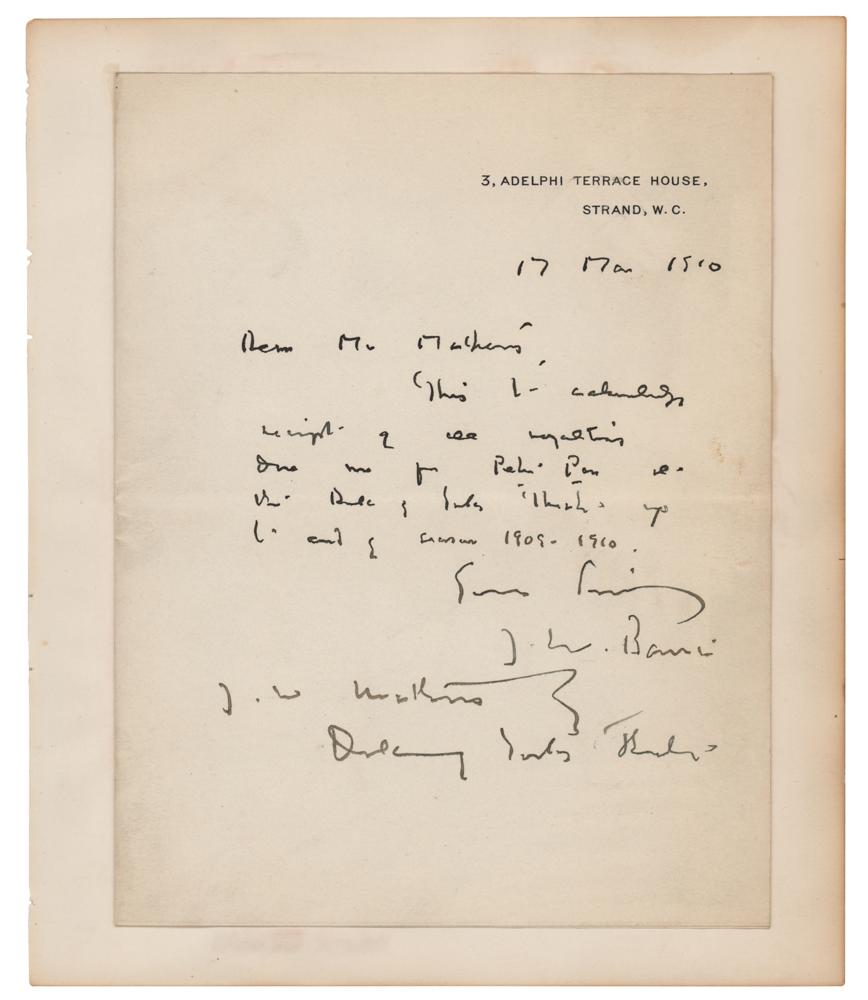 3, ADELPHI TERRACE HOUSE,
STRAND, W.C.
17 Mar 1910
Dear Mr Mathews
This to acknowledge
receipt of all royalties
due me for Peter Pan at
the Duke of Yorks Theatre up
to end of season 1909-1910.
Yours Sincy
J. M. Barrie
J. W Mathews
Duke of Yorks Theatre